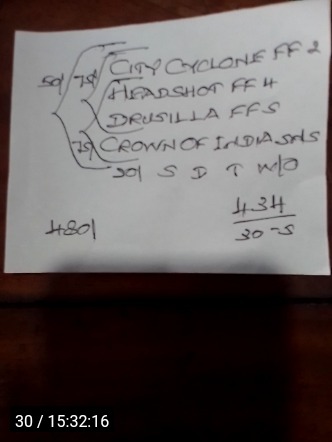 50/ 75/ CITY CYCLONE FF 2
HEADSHOT FF 4
DRUSILLA FF 5
75/ CROWN OF INDIA SHS
30/ S D T W/O
480/
434
30-5
30 / 15:32:16